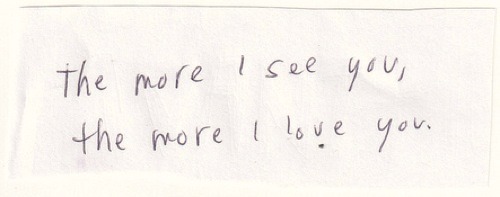 the more I see you,
the more I love you.